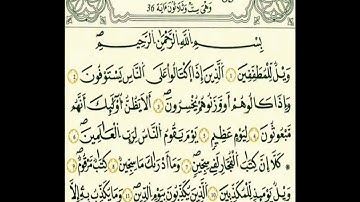 وَهِيَ سِتٌّ وَثَلَاثُونَ آيَةً 36
بِسْمِ اللَّهِ الرَّحْمَٰنِ الرَّحِيمِ
وَيْلٌ لِلْمُطَفِّفِينَ ١ الَّذِينَ إِذَا اكْتَالُوا عَلَى النَّاسِ يَسْتَوْفُونَ ٢
وَإِذَا كَالُوهُمْ أَوْ وَزَنُوهُمْ يُخْسِرُونَ ٣ أَلَا يَظُنُّ أُولَٰئِكَ أَنَّهُمْ
مَبْعُوثُونَ ٤ لِيَوْمٍ عَظِيمٍ ٥ يَوْمَ يَقُومُ النَّاسُ لِرَبِّ الْعَالَمِينَ ٦
كَلَّا إِنَّ كِتَابَ الْفُجَّارِ لَفِي سِجِّينٍ ٧ وَمَا أَدْرَاكَ مَا سِجِّينٌ ٨ كِتَابٌ مَرْقُومٌ ٩
وَيْلٌ يَوْمَئِذٍ لِلْمُكَذِّبِينَ ١٠ الَّذِينَ يُكَذِّبُونَ بِيَوْمِ الدِّينِ ١١ وَمَا يُكَذِّبُ بِهِ إِلَّا